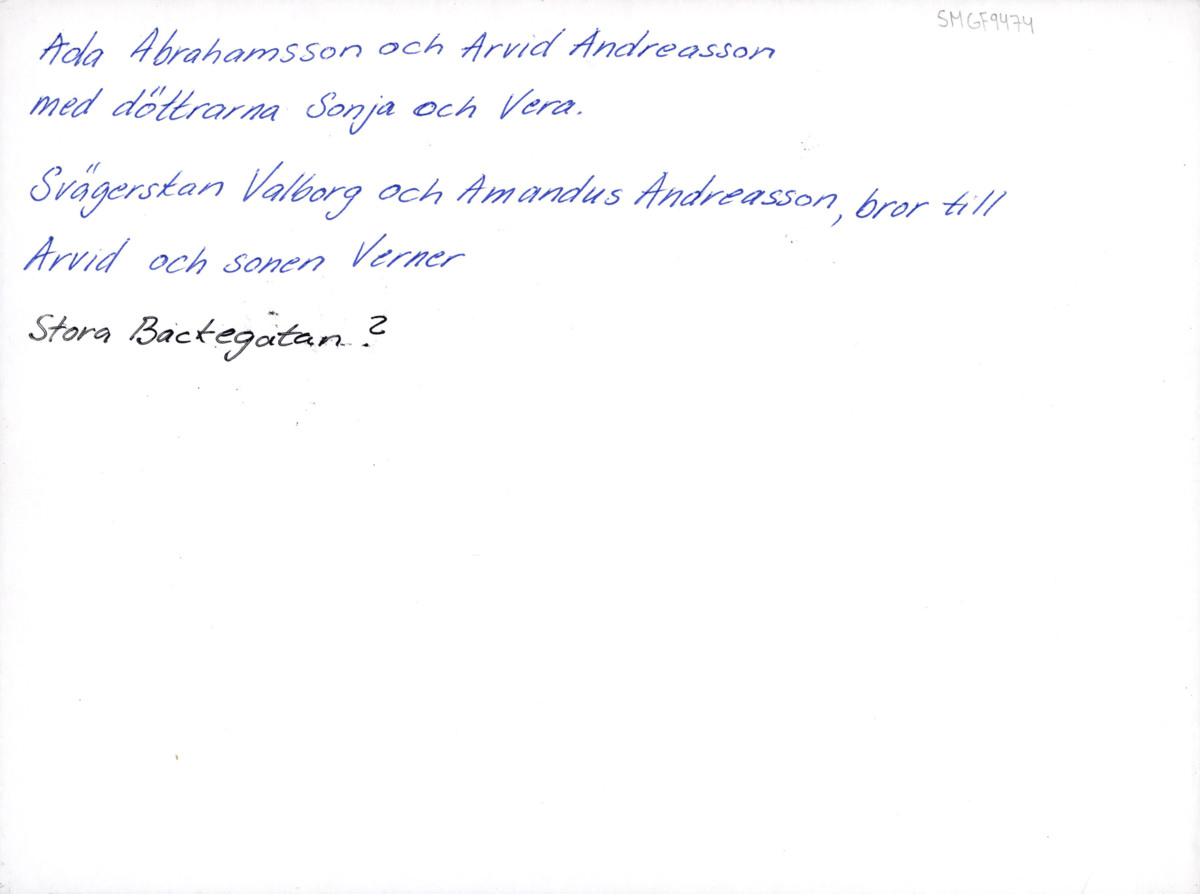 SMGF9474
Ada Abrahamsson och Arvid Andreasson
med döttrarna Sonja och Vera.
Svägerskan Valborg och Amandus Andreasson, bror till
Arvid och sonen Verner
Stora Backegatan?